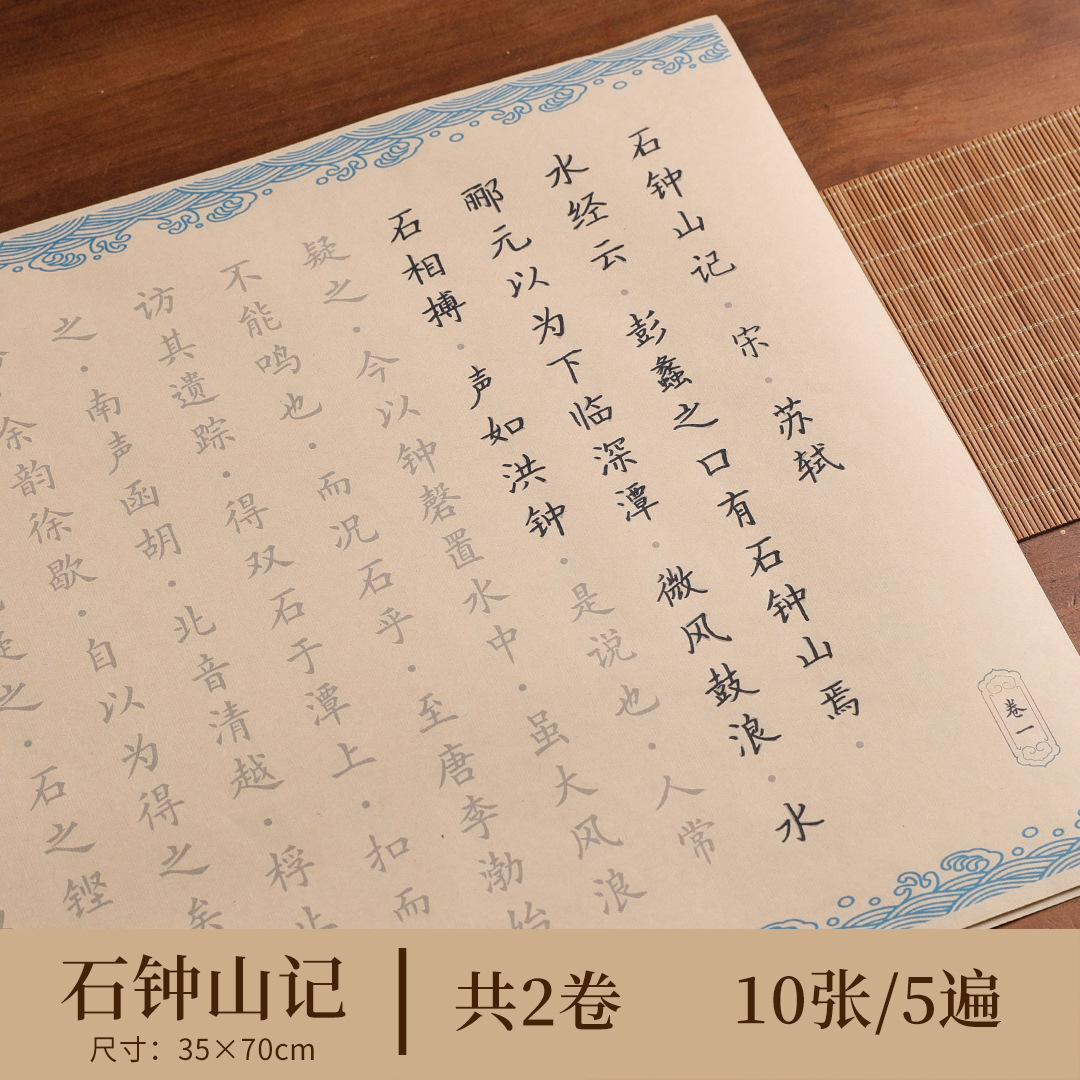 石钟山记·宋·苏轼
水经云·彭蠡之口有石钟山焉·
郦元以为下临深潭·微风鼓浪·水
石相搏·声如洪钟·是说也·人常
疑之·今以钟磬置水中·虽大风浪
不能鸣也·而况石乎·至唐李渤始
访其遗踪·得双石于潭上·扣而
之·南声函胡·北音清越·桴止
余韵徐歇·自以为得之矣
之·石之铿
卷一
石钟山记
尺寸：35×70cm
共2卷
10张/5遍